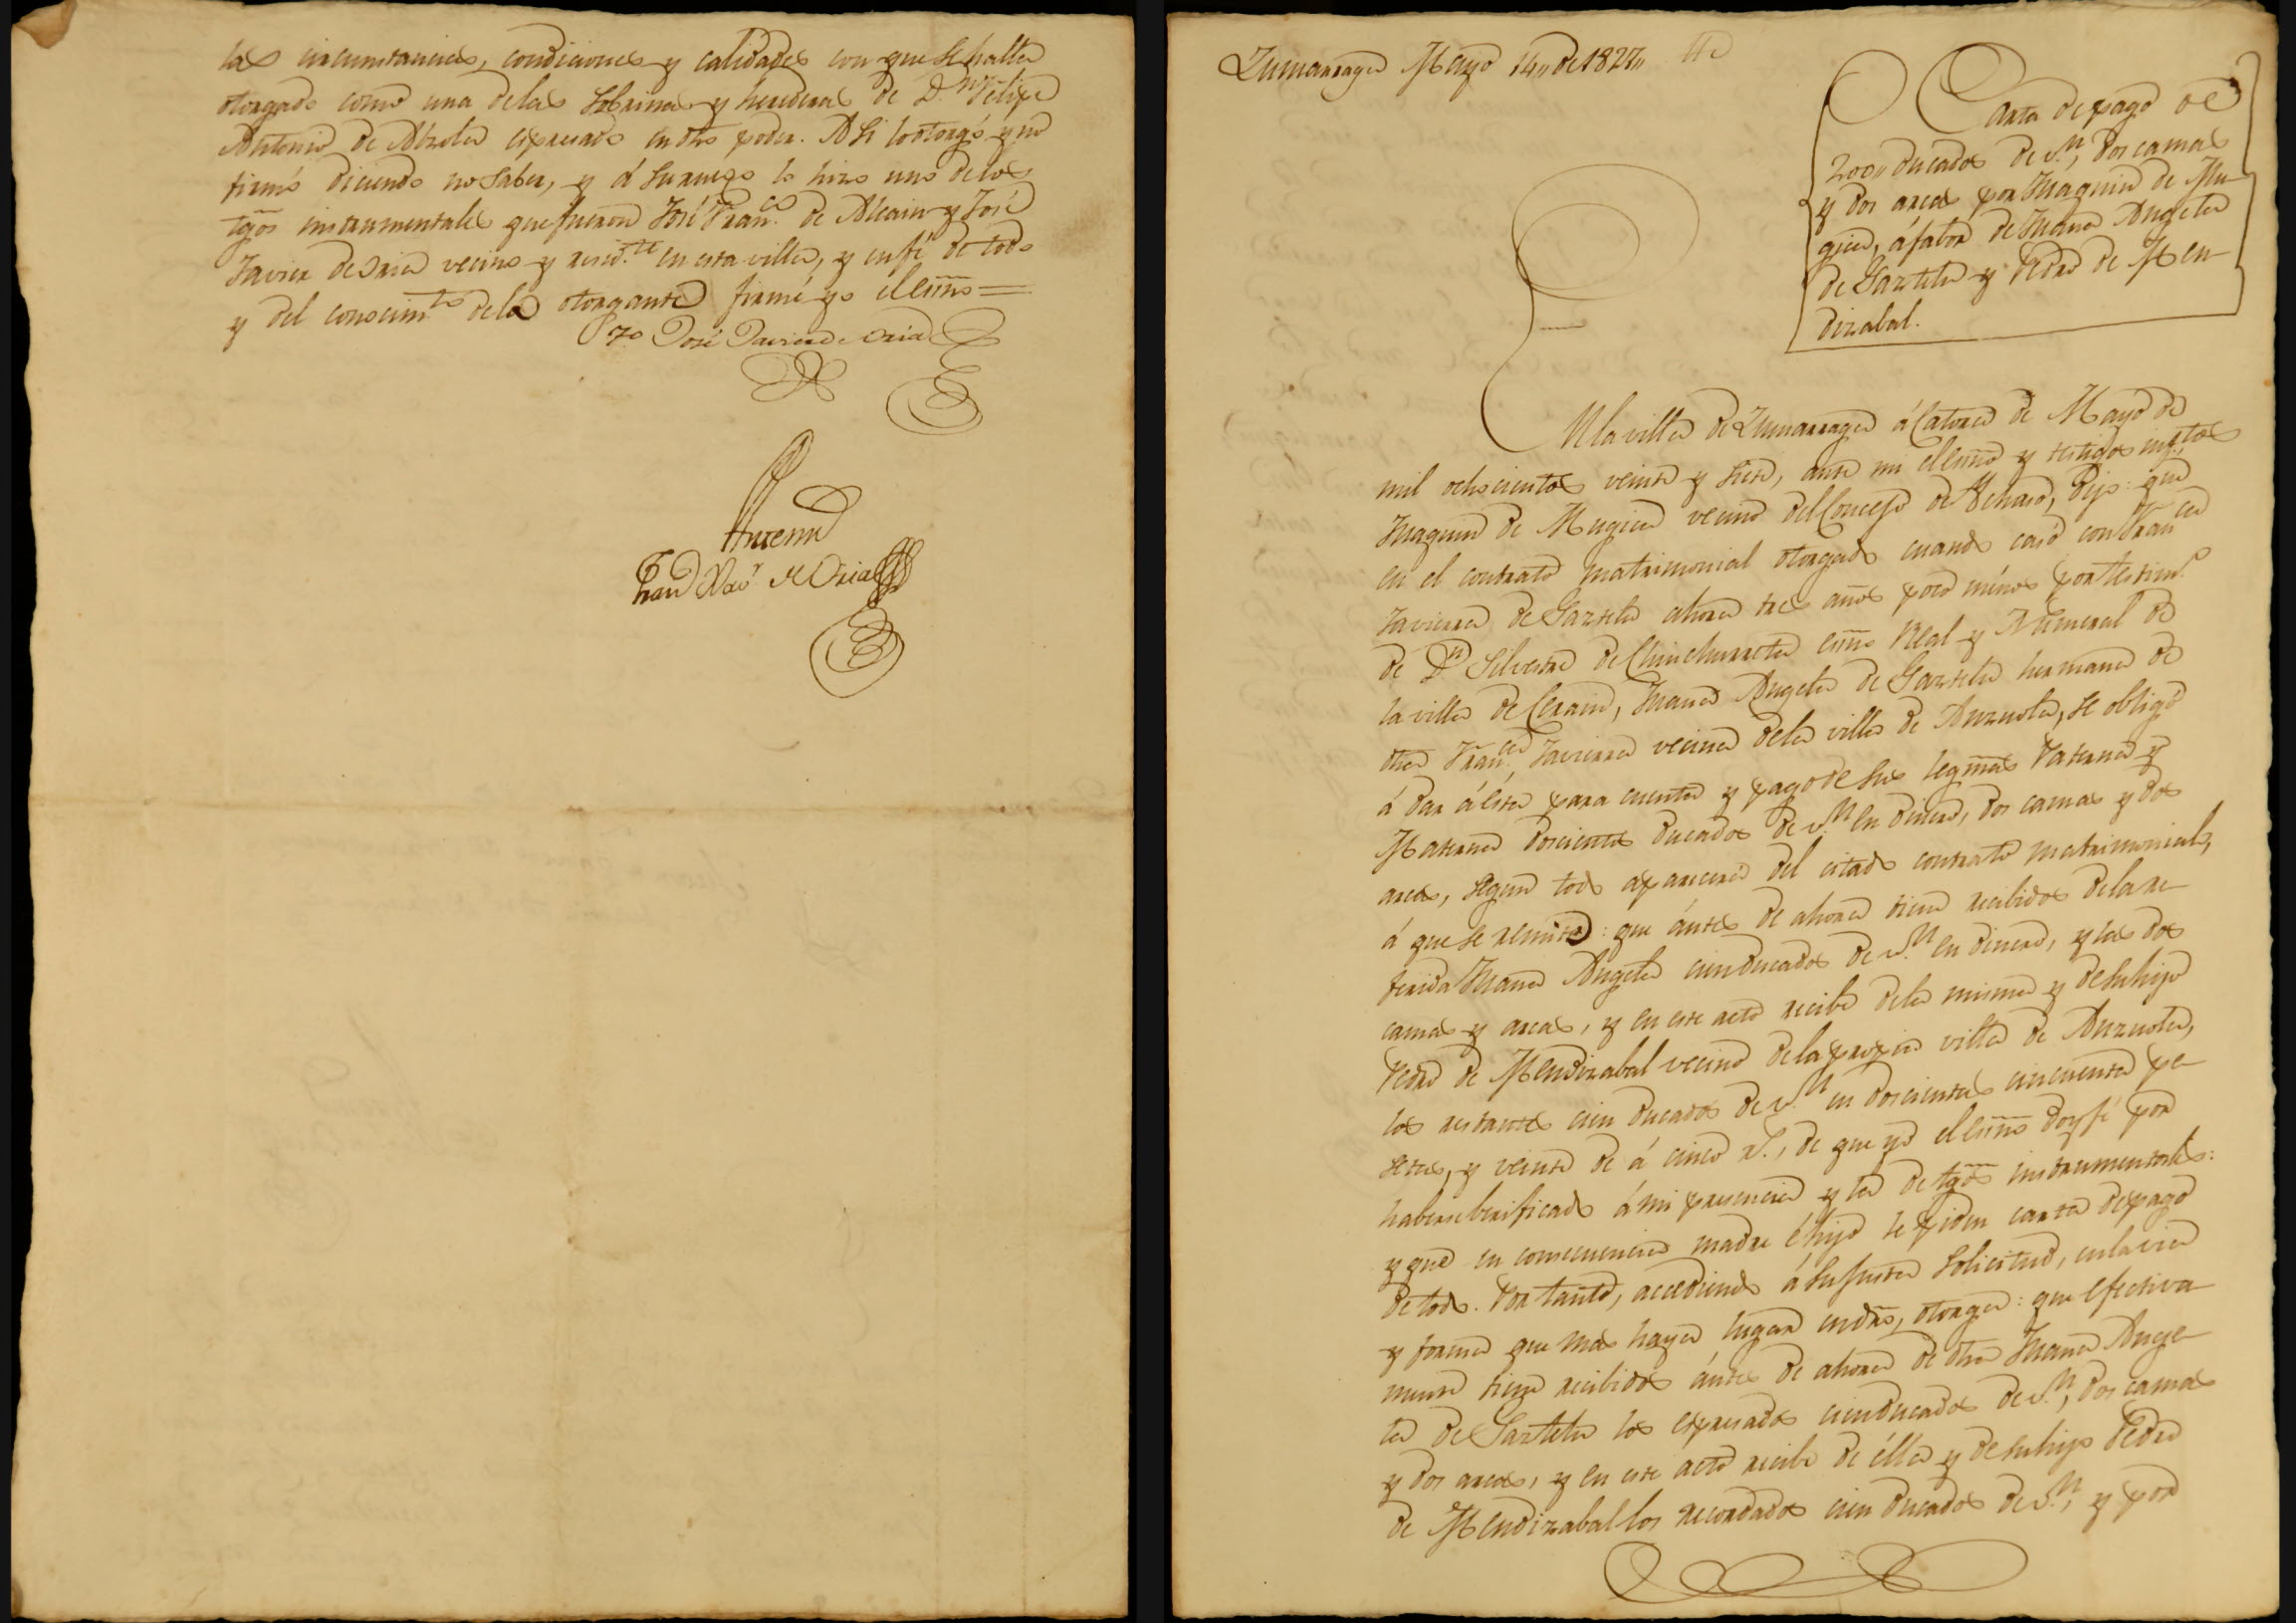 las circunstancias, condiciones y calidades con que se halla
otorgado como una de las sobrinas y herederas de D.n Felipe
Antonio de Alzola expresado en dho poder. Asi lo otorgó y no
firmó diciendo no saber, y á su ruego lo hizo uno de los
tgõs instrumentales que fueron José Fran.co de Alcain y José
Javier de Oria vecino y resid.te en esta villa, y en fé de todo
y del conocim.to de la otorgante firmé yo el essno=
Yo José Javier de Oria
Antemi
Fran.co Xav.r de Oria
Zumarraga Mayo 14,, de 1827,,
Carta de pago de
200,, ducados de v.n, dos camas
y dos arcas, por Juaquin de Mu-
gica, á fabor de Juana Angela
de Gaztelu y Pedro de Men-
dizabal.
En la villa de Zumarraga á Catorce de Mayo de
mil ochocientos veinte y siete, ante mi el essno y testigos inf.tos
Juaquin de Mugica vecino del Concejo de Ichaso, dijo: que
en el contrato matrimonial otorgado cuando casó con Fran.ca
Javierra de Gaztelu ahora tres años poco ménos por testim.o
de D.n Silvestre de Chinchurreta essno Real y Numeral de
la villa de Cerain, Juana Angela de Gaztelu hermana de
dha Fran.ca Javierra vecina de la villa de Anzuola, se obligó
á dar á esta para cuenta y pago de sus legmãs Paterna y
Materna doscientos ducados de v.n en dinero, dos camas y dos
arcas, segun todo aparecerá del citado contrato matrimonial,
á que se remite: que ántes de ahora tiene recibidos de la re-
ferida Juana Angela cien ducados de v.n en dinero, y las dos
camas y arcas, y en este acto recibe de la misma y de su hijo
Pedro de Mendizabal vecino de la propia villa de Anzuola,
los restantes cien ducados de v.n en doscientas cincuenta pe-
setas, y veinte de á cinco r.s, de que yo el essno doy fé por
haberse berificado á mi presencia y la de tgõs instrumentales:
y que en consecuencia madre é hijo le piden carta de pago
de todo. Por tanto, accediendo á su justa solicitud, en la via
y forma que mas haya lugar en dro, otorga: que efectiva-
mente tiene recibidos ántes de ahora de dha Juana Ange-
la de Gaztelu los expresados cien ducados de v.n, dos camas
y dos arcas, y en este acto recibe de élla y de su hijo Pedro
de Mendizabal los recordados cien ducados de v.n, y por